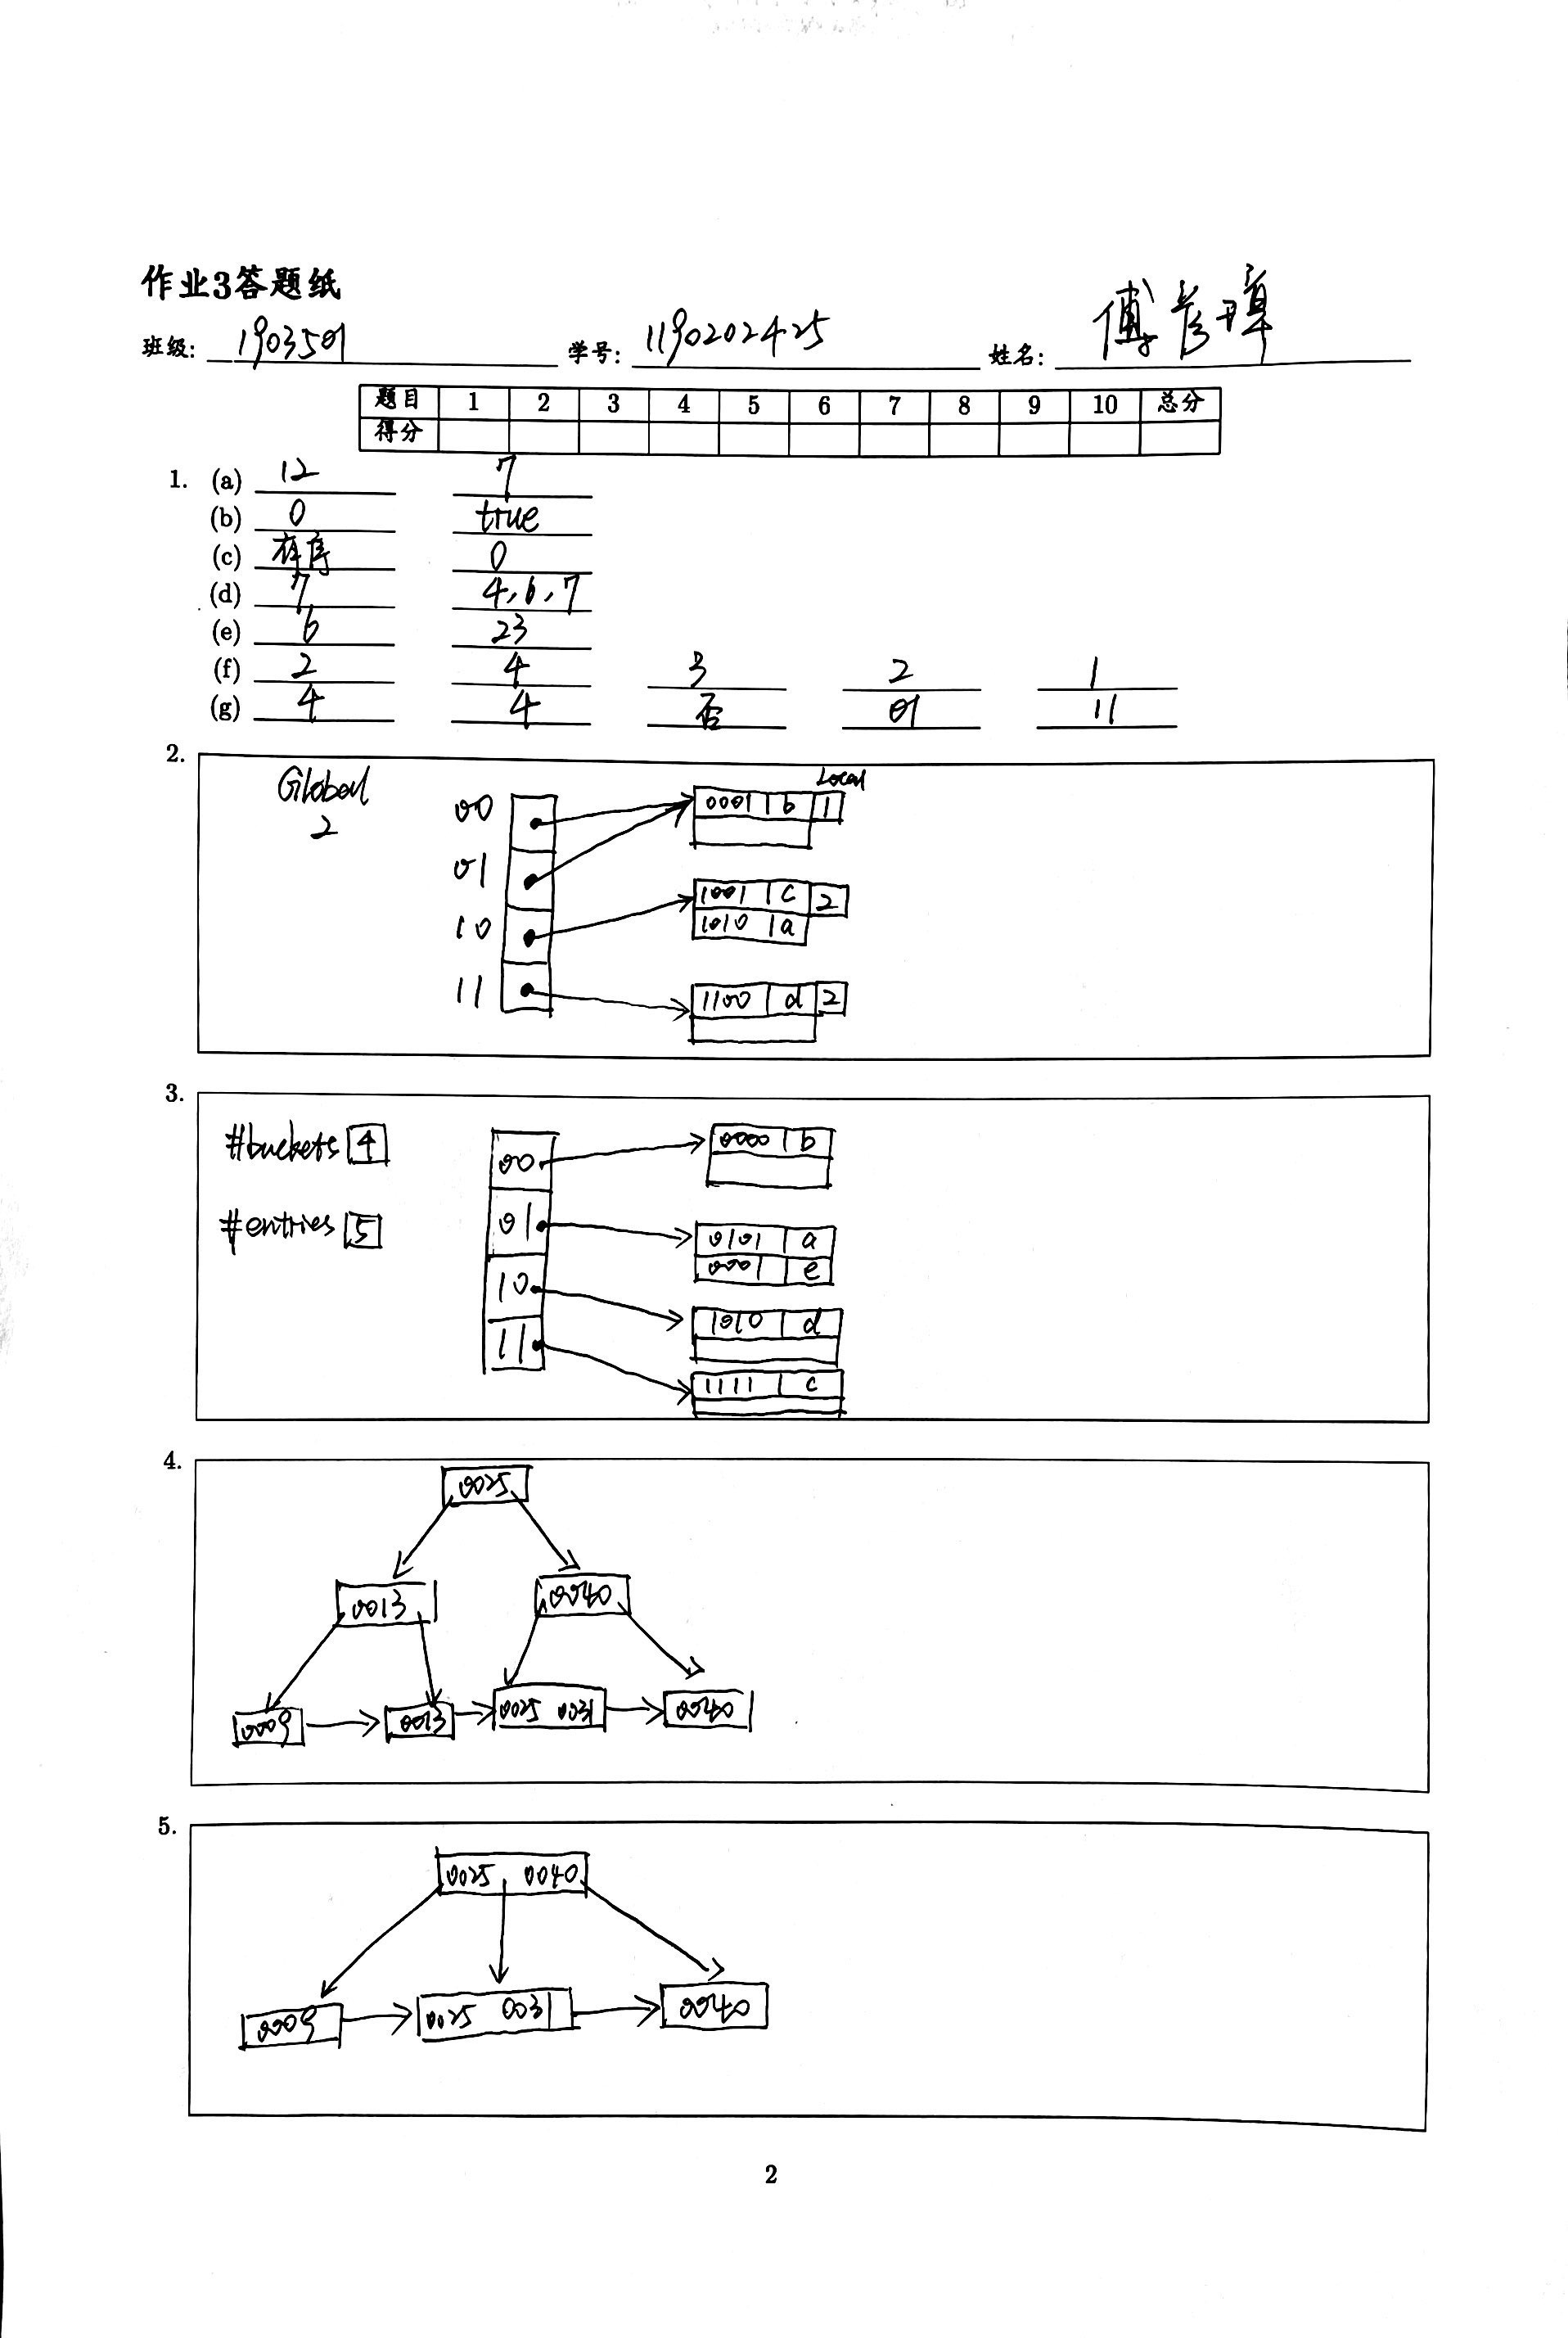 作业3答题纸
班级: 1903501 学号: 1190202425 姓名: 傅彦璋
题目 1 2 3 4 5 6 7 8 9 10 总分
得分
1. (a) 12 7
(b) 0 true
(c) 有序 0
(d) 7 4,6,7
(e) 6 23
(f) 2 4 3 2 1
(g) 4 4 否 01 11
2.
Global
2
Local
00 0001 b 1
01
10 1001 c 2
1010 a
11 1100 d 2
3.
#buckets 4
#entries 5
00 0000 b
01 0101 a
0001 e
10 1010 d
11 1111 c
4.
0025
0013 0040
0009 0013 0025 0031 0040
5.
0025 0040
0009 0025 0031 0040
2